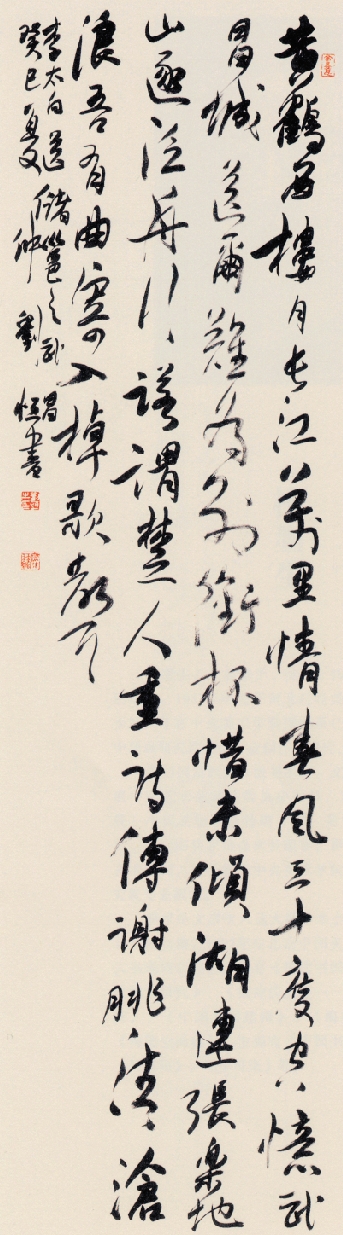 黄鶴西樓月長江萬里情春風三十度空憶武
昌城送爾難為別銜杯惜未傾湖連張樂地
山逐泛舟行諾謂楚人重詩傳謝朓清滄
浪吾有曲寄入棹歌聲
李太白送儲邕之武昌
癸巳夏仲劉恒書